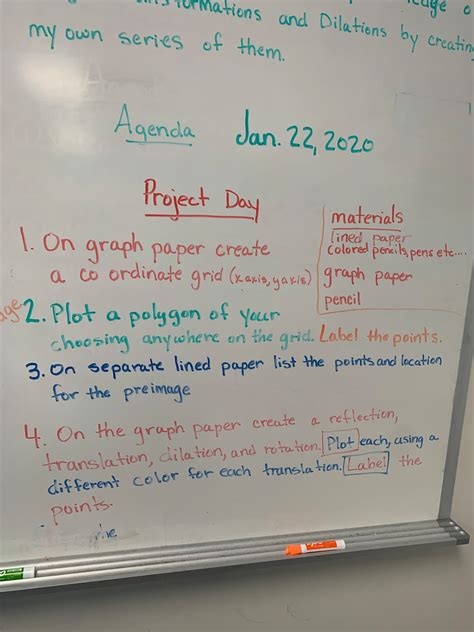 and Dilations by creating
my own series of them.
Agenda Jan. 22, 2020
Project Day
1. On graph paper create
a co ordinate grid (x axis, y axis)
materials
lined paper
colored pencils, pens etc....
graph paper
pencil
2. Plot a polygon of your
choosing anywhere on the grid. Label the points.
3. On separate lined paper list the points and location
for the preimage
4. On the graph paper create a reflection,
translation, dilation, and rotation. Plot each, using a
different color for each translation. Label the
points.